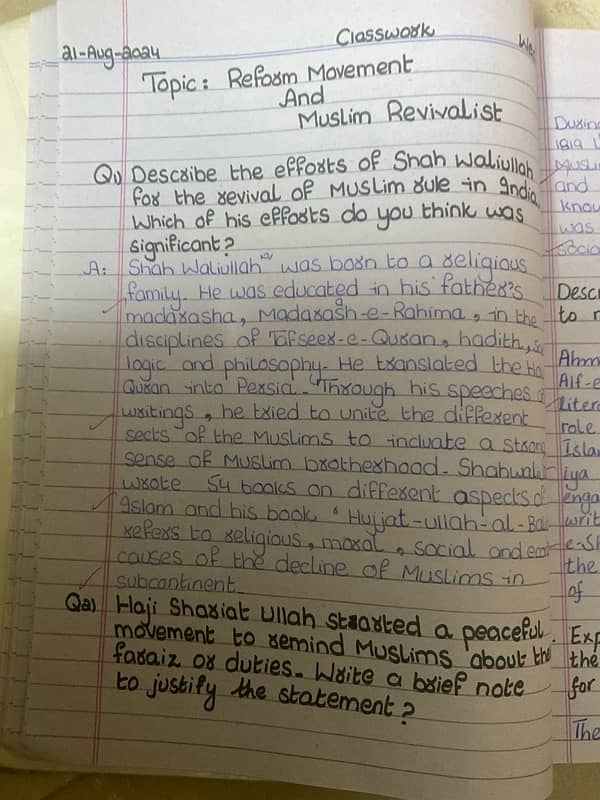 Classwork
21-Aug-2024
Topic: Reform Movement
And
Muslim Revivalist
Q1) Describe the efforts of Shah Waliullah
for the revival of Muslim rule in India.
Which of his efforts do you think was
significant?
A: Shah Waliullah was born to a religious
family. He was educated in his father's
madarasha, Madarash-e-Rahima, in the
disciplines of Tafseer-e-Quran, hadith,
logic and philosophy. He translated the
Quran into Persia. Through his speeches
writings, he tried to unite the different
sects of the Muslims to incluate a
sense of Muslim brotherhood. Shahwali
wrote 54 books on different aspects
Islam and his book "Hujjat-ullah-al-
refers to religious, moral, social and
causes of the decline of Muslims in
subcontinent.
Q2) Haji Shariat Ullah started a peaceful
movement to remind Muslims about the
faraiz or duties. Write a brief note
to justify the statement?
and
was
Descr
to
Ahm
Alf-e
role
Islam
iya
writ
e-Sh
the
of
Exp
the
for
The